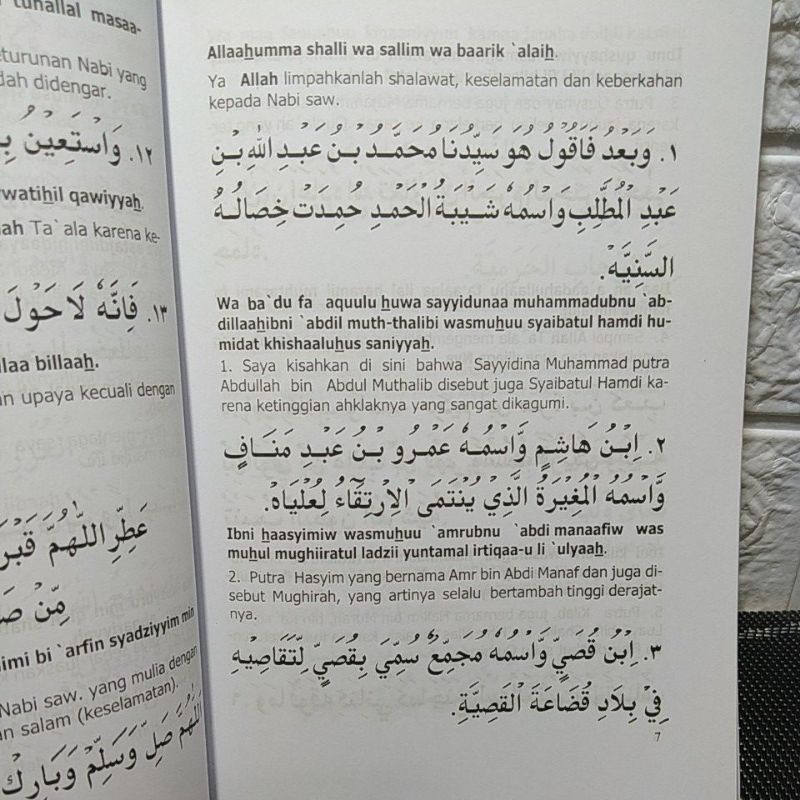 tunallal masaa-
eturunan Nabi yang
dah didengar.
١٢. وَاسْتَعِيْنُ
wwatihil qawiyyah.
Ta`ala karena ke-
١٣. فَاِنَّهُ لَاحَوْلَ
laa billaah.
an upaya kecuali dengan
عَطِّرِ اللّٰهُمَّ قَبْرَ
مِّنْ
imi bi `arfin syadziyyim min
Nabi saw. yang mulia dengan
an salam (keselamatan).
اَللّٰهُمَّ صَلِّ وَسَلِّمْ وَبَارِكْ
Allaahumma shalli wa sallim wa baarik `alaih.
Ya Allah limpahkanlah shalawat, keselamatan dan keberkahan
kepada Nabi saw.
١. وَبَعْدُ فَاَقُوْلُ هُوَ سَيِّدُنَا مُحَمَّدُ بْنُ عَبْدِ اللّٰهِ بْنِ
عَبْدِ الْمُطَّلِبِ وَاسْمُهُ شَيْبَةُ الْحَمْدِ حُمِدَتْ خِصَالُهُ
السَّنِيَّه.
Wa ba`du fa aquulu huwa sayyidunaa muhammadubnu `ab-
dillaahibni `abdil muth-thalibi wasmuhuu syaibatul hamdi hu-
midat khishaaluhus saniyyah.
1. Saya kisahkan di sini bahwa Sayyidina Muhammad putra
Abdullah bin Abdul Muthalib disebut juga Syaibatul Hamdi ka-
rena ketinggian ahklaknya yang sangat dikagumi.
٢. اِبْنُ هَاشِمٍ وَّاسْمُهُ عَمْرُو بْنُ عَبْدِ مَنَافٍ
وَّاسْمُهُ الْمُغِيْرَةُ الَّذِيْ يُنْتَمَى الْاِرْتِقَآءُ لِعُلْيَاهُ.
Ibni haasyimiw wasmuhuu `amrubnu `abdi manaafiw was
muhul mughiiratul ladzii yuntamal irtiqaa-u li `ulyaah.
2. Putra Hasyim yang bernama Amr bin Abdi Manaf dan juga di-
sebut Mughirah, yang artinya selalu bertambah tinggi derajat-
nya.
٣. اِبْنُ قُصَيٍّ وَّاسْمُهُ مُجَمِّعٌ سُمِّيَ بِقُصَيٍّ لِّتَقَاصِيْهِ
فِيْ بِلَادِ قُضَاعَةَ الْقَصِيَّةِ.
7